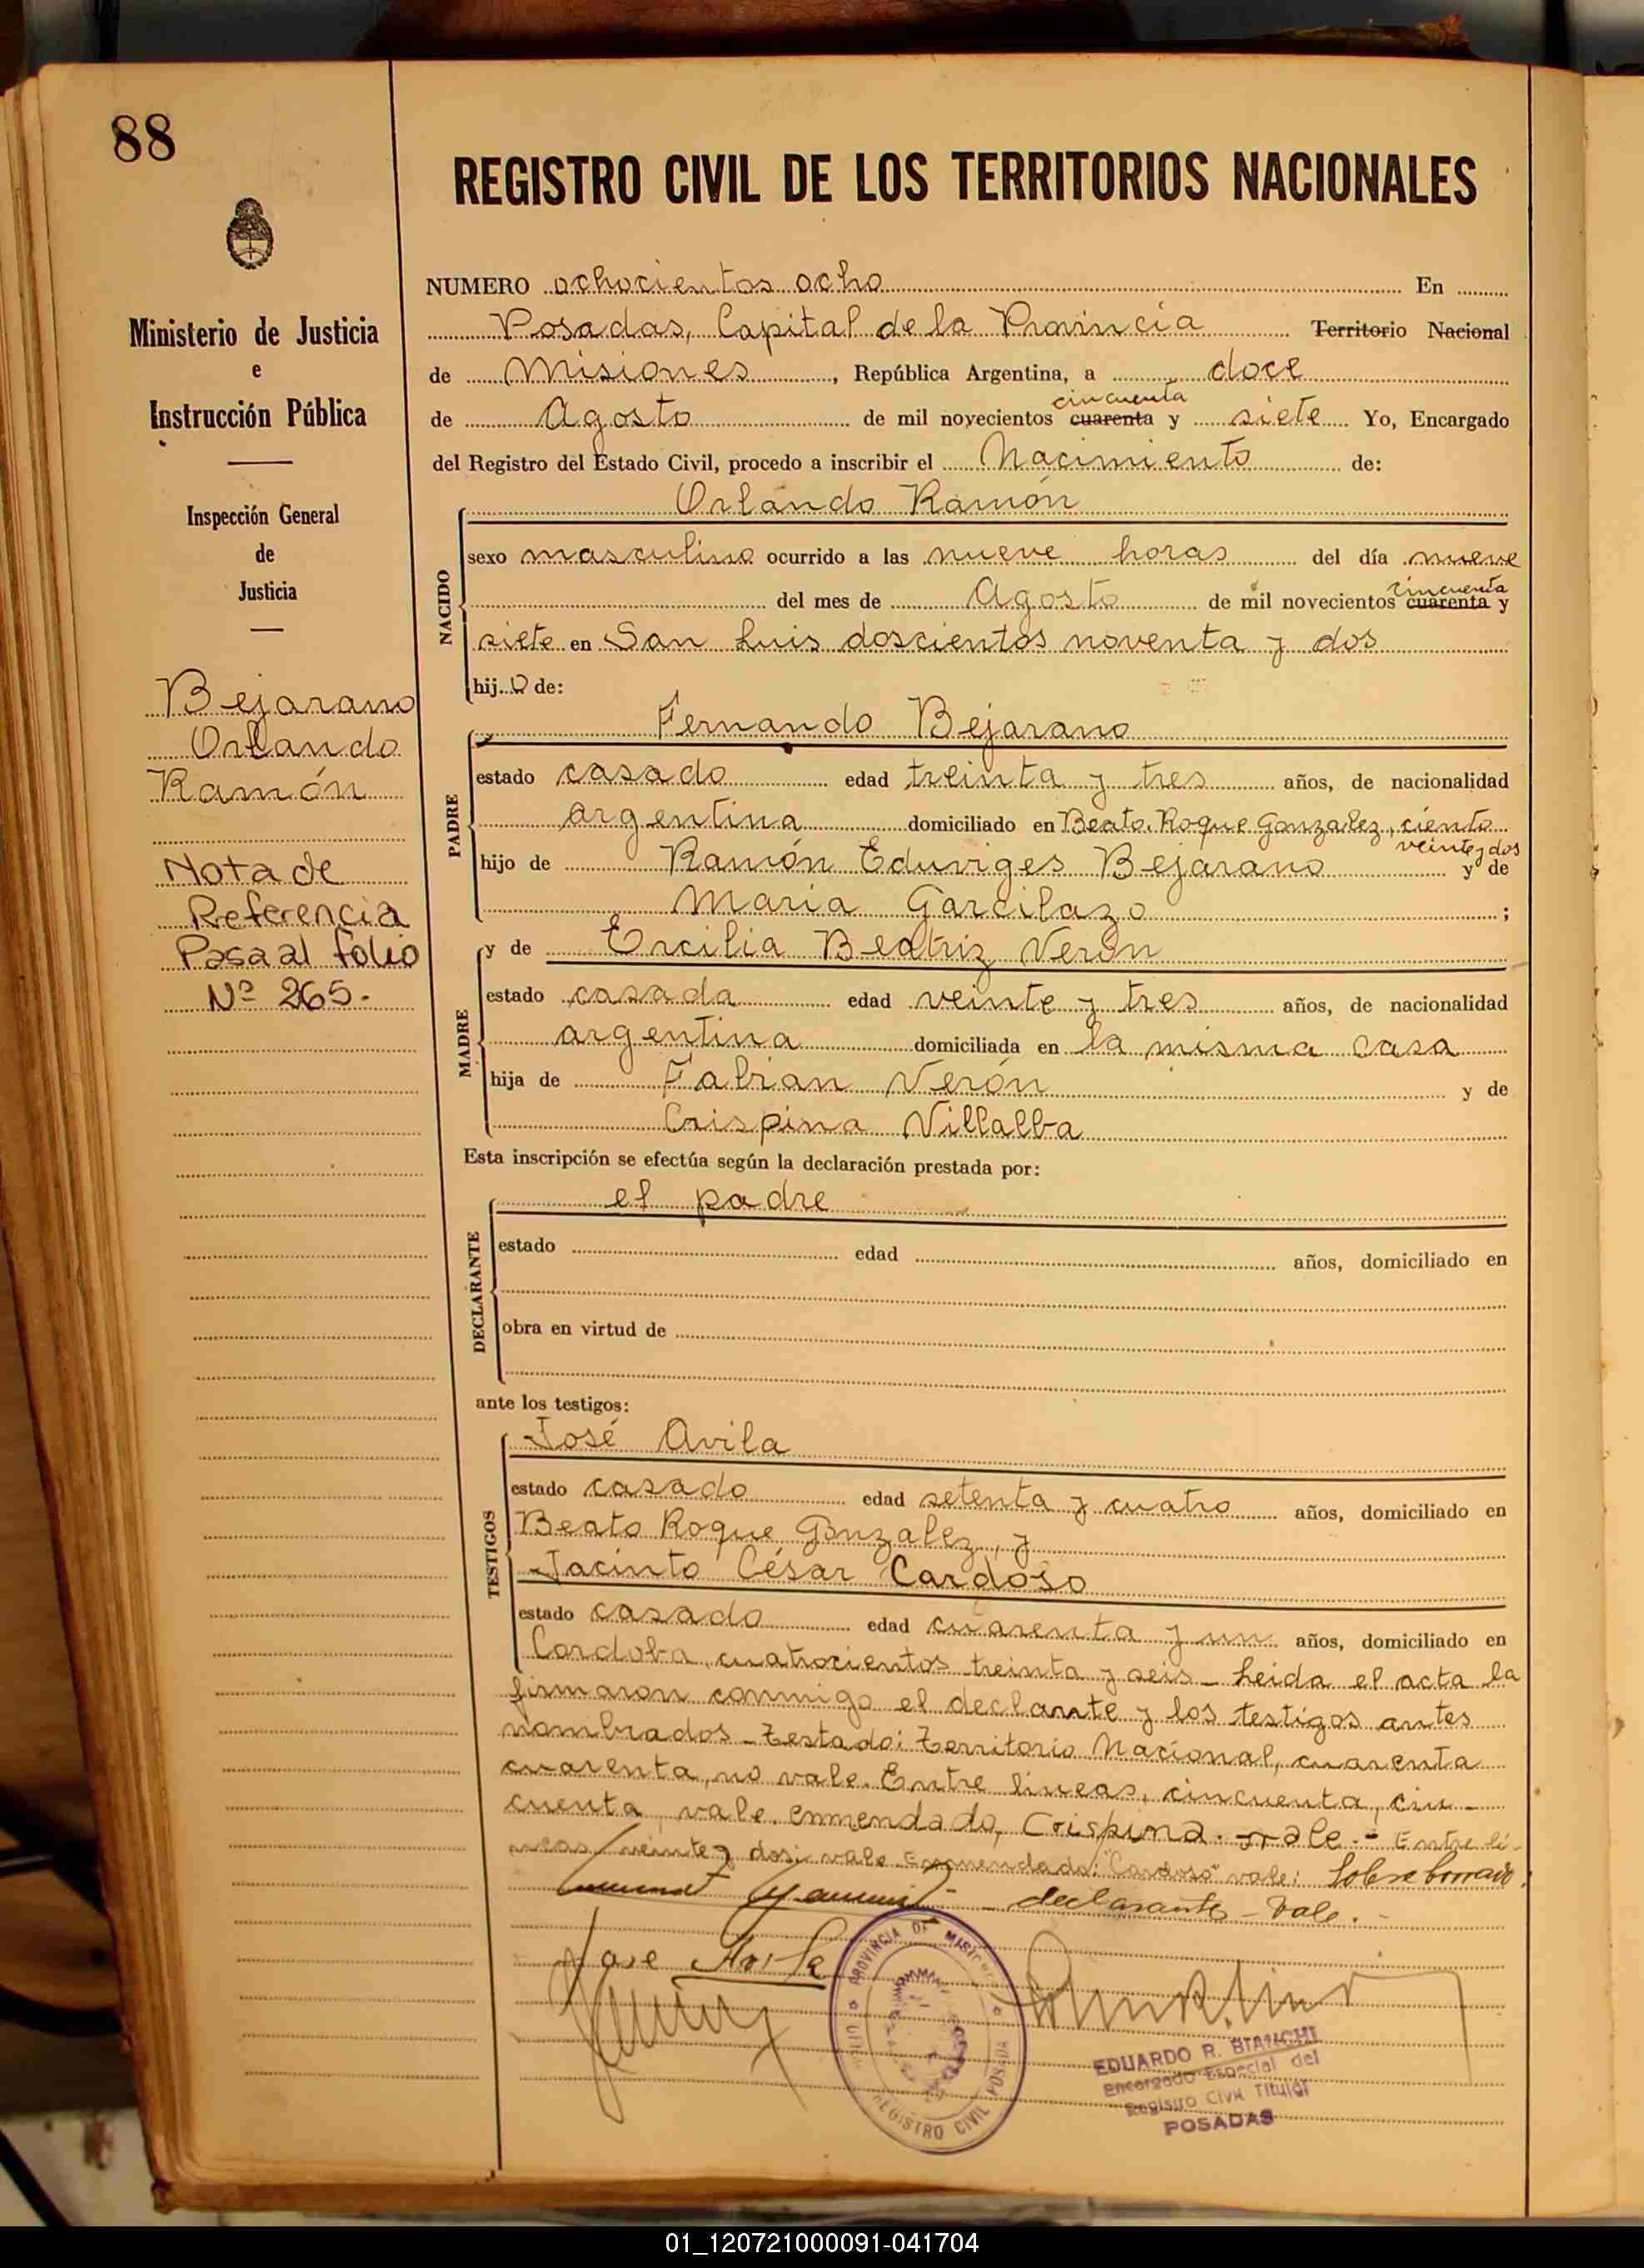 88
REGISTRO CIVIL DE LOS TERRITORIOS NACIONALES
Ministerio de Justicia
e
Instrucción Pública
Inspección General
de
Justicia
Bejarano
Orlando
Ramón
Nota de
Referencia
Pasa al folio
Nº 265.-
NUMERO ochocientos ocho En
Posadas, Capital de la Provincia Territorio Nacional
de Misiones, República Argentina, a doce
cincuenta
de Agosto de mil novecientos cuarenta y siete Yo, Encargado
del Registro del Estado Civil, procedo a inscribir el Nacimiento de:
NACIDO
Orlando Ramón
sexo masculino ocurrido a las nueve horas del día nueve
cincuenta
del mes de Agosto de mil novecientos cuarenta y
siete en San Luis doscientos noventa y dos
hijo de:
PADRE
Fernando Bejarano
estado casado edad treinta y tres años, de nacionalidad
argentina domiciliado en Beato Roque Gonzalez, ciento
veinte y dos
hijo de Ramón Eduviges Bejarano y de
Maria Garcilazo ;
MADRE
y de Ercilia Beatriz Verón
estado casada edad veinte y tres años, de nacionalidad
argentina domiciliada en la misma casa
hija de Fabian Verón y de
Crispina Villalba
Esta inscripción se efectúa según la declaración prestada por:
DECLARANTE
el padre
estado edad años, domiciliado en
obra en virtud de
ante los testigos:
TESTIGOS
José Avila
estado casado edad setenta y cuatro años, domiciliado en
Beato Roque Gonzalez, y
Jacinto César Cardoso
estado casado edad cuarenta y un años, domiciliado en
Cordoba, cuatrocientos treinta y seis - Leida el acta la
firmaron conmigo el declarante y los testigos antes
nombrados - Testado: Territorio Nacional, cuarenta
cuarenta, no vale. Entre lineas, cincuenta, cin-
cuenta, vale, enmendado, Crispina. vale.- Entre li-
neas/ veinte y dos; vale Enmendado: "Cardoso" vale: Sobre borrado:
declarante - Vale.-
Jose Avila
PROVINCIA DE MISIONES
REGISTRO CIVIL
EDUARDO R. BIANCHI
Encargado Especial del
Registro Civil Titular
POSADAS
01_120721000091-041704